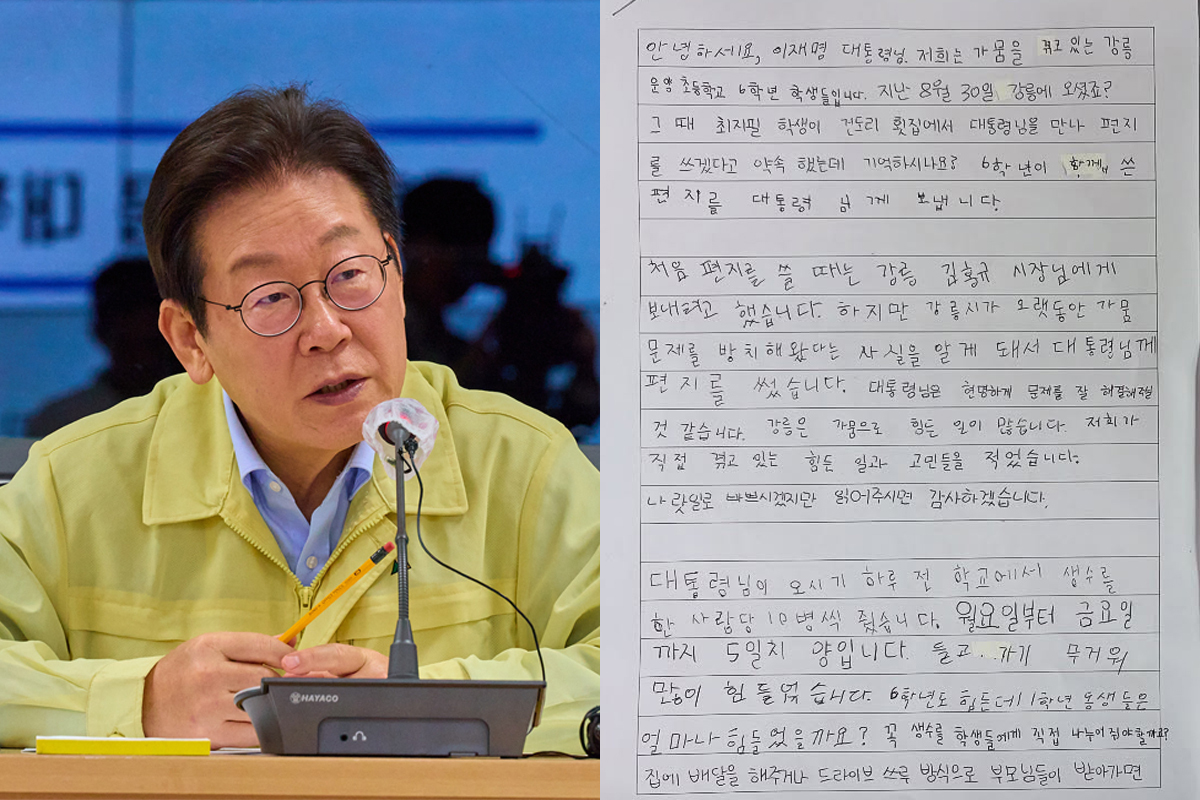 HAYACO
안녕하세요, 이재명 대통령님. 저희는 가뭄을 겪고 있는 강릉
운양초등학교 6학년 학생들입니다. 지난 8월 30일 강릉에 오셨죠?
그 때 최지필 학생이 건도리 횟집에서 대통령님을 만나 편지
를 쓰겠다고 약속 했는데 기억하시나요? 6학년이 함께 쓴
편지를 대통령 님께 보냅니다.
처음 편지를 쓸 때는 강릉 김홍규 시장님에게
보내려고 했습니다. 하지만 강릉시가 오랫동안 가뭄
문제를 방치해왔다는 사실을 알게 돼서 대통령님께
편지를 썼습니다. 대통령님은 현명하게 문제를 잘 해결해주실
것 같습니다. 강릉은 가뭄으로 힘든 일이 많습니다. 저희가
직접 겪고 있는 힘든 일과 고민들을 적었습니다.
나랏일로 바쁘시겠지만 읽어주시면 감사하겠습니다.
대통령님이 오시기 하루 전 학교에서 생수를
한 사람당 10병씩 줬습니다. 월요일부터 금요일
까지 5일치 양입니다. 들고 가기 무거워
많이 힘들었습니다. 6학년도 힘든데 1학년 동생들은
얼마나 힘들었을까요? 꼭 생수를 학생들에게 직접 나누어줘야할까요?
집에 배달을 해주거나 드라이브 쓰루 방식으로 부모님들이 받아가면